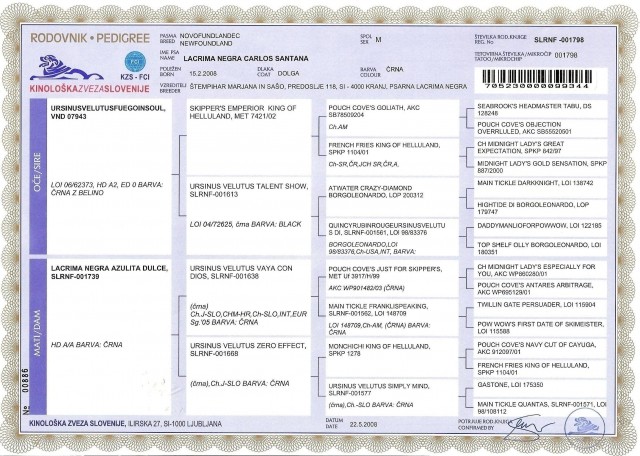 RODOVNIK • PEDIGREE
KZS - FCI
KINOLOŠKAZVEZASLOVENIJE
PASMA NOVOFUNDLANDEC
BREED NEWFOUNDLAND
SPOL M
SEX
ŠTEVILKA ROD.KNJIGE SLRNF -001798
REG. No.
IME PSA LACRIMA NEGRA CARLOS SANTANA
NAME
TETOVIRNA ŠTEVILKA/MIKROČIP 001798
TATOO/MICROCHIP
POLEŽEN 15.2.2008
BORN
DLAKA DOLGA
COAT
BARVA ČRNA
COLOUR
VZREDITELJ ŠTEMPIHAR MARJANA IN SAŠO, PREDOSLJE 118, SI - 4000 KRANJ, PSARNA LACRIMA NEGRA
BREEDER
705230000099344
OČE/SIRE
URSINUSVELUTUSFUEGOINSOUL,
VND 07943
LOI 06/62373, HD A2, ED 0 BARVA:
ČRNA Z BELINO
MATI/DAM
LACRIMA NEGRA AZULITA DULCE,
SLRNF-001739
HD A/A BARVA: ČRNA
SKIPPER'S EMPERIOR KING OF
HELLULAND, MET 7421/02
URSINUS VELUTUS TALENT SHOW,
SLRNF-001613
LOI 04/72625, črna BARVA: BLACK
URSINUS VELUTUS VAYA CON
DIOS, SLRNF-001638
(črna)
Ch.J-SLO,CHM-HR,Ch-SLO,INT,EUR
Sg.'05 BARVA: ČRNA
URSINUS VELUTUS ZERO EFFECT,
SLRNF-001668
(črna),Ch.J-SLO BARVA: ČRNA
POUCH COVE'S GOLIATH, AKC
SB78509204
Ch.AM
FRENCH FRIES KING OF HELLULAND,
SPKP 1104/01
Ch-SR,ČR,JCH SR,ČR,A,
ATWATER CRAZY-DIAMOND
BORGOLEONARDO, LOP 200312
QUINCYRUBINROUGEURSINUSVELUTU
S DI, SLRNF-001561, LOI 98/83376
BORGOLEONARDO,LOI
98/83376,Ch-USA,INT, BARVA:
POUCH COVE'S JUST FOR SKIPPER'S,
MET Uf 3917/H/99
AKC WP901482/03 (ČRNA)
MAIN TICKLE FRANKLISPEAKING,
SLRNF-001562, LOI 148709
LOI 148709,Ch-AM, (ČRNA) BARVA:
ČRNA
MONCHICHI KING OF HELLULAND,
SPKP 1278
URSINUS VELUTUS SIMPLY MIND,
SLRNF-001577
(črna),Ch.-SLO BARVA: ČRNA
SEABROOK'S HEADMASTER TABU, DS
128248
POUCH COVE'S OBJECTION
OVERRLULED, AKC SB55520501
CH MIDNIGHT LADY'S GREAT
EXPECTATION, SPKP 842/97
MIDNIGHT LADY'S GOLD SENSATION, SPKP
887/2000
MAIN TICKLE DARKKNIGHT, LOI 138742
HIGHTIDE DI BORGOLEONARDO, LOP
179747
DADDYMANLIOFORPOWWOW, LOI 122185
TOP SHELF OLLY BORGOLEONARDO, LOI
180351
CH MIDNIGHT LADY'S ESPECIALLY FOR
YOU, AKC WP860280/01
POUCH COVE'S ANTARES ARBITRAGE,
AKC WP695129/01
TWILLIN GATE PERSUADER, LOI 115904
POW WOW'S FIRST DATE OF SKIMEISTER,
LOI 115588
POUCH COVE'S NAVY CUT OF CAYUGA,
AKC 912097/01
FRENCH FRIES KING OF HELLULAND, SPKP
1104/01
GASTONE, LOI 175350
MAIN TICKLE QUANTAS, SLRNF-001571, LOI
98/108112
No 00886
KINOLOŠKA ZVEZA SLOVENIJE, ILIRSKA 27, SI-1000 LJUBLJANA
DATUM 22.5.2008
DATE
POTRJUJE ROD.KNJIGA
CONFIRMED BY